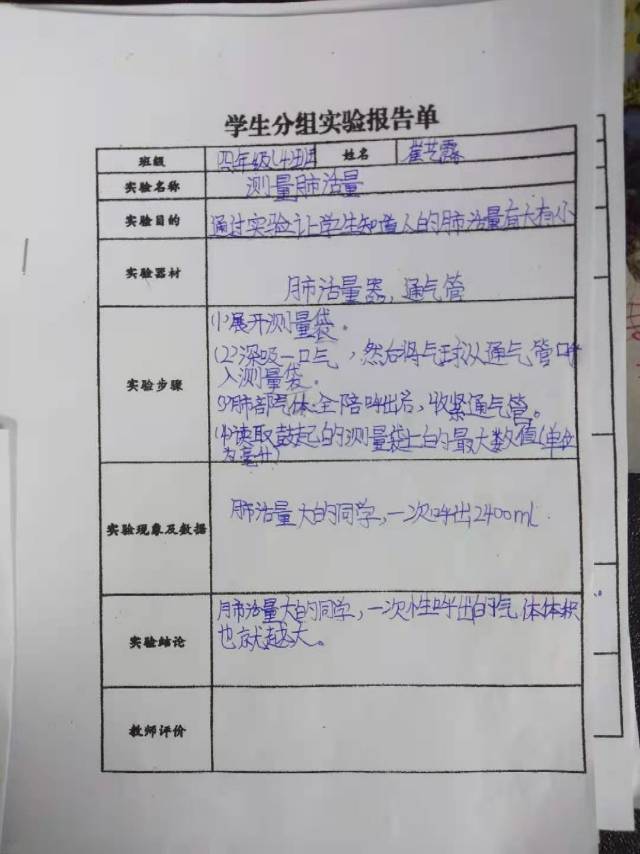 学生分组实验报告单
班级 四年级(4)班 姓名 崔艺露
实验名称 测量肺活量
实验目的 通过实验让学生知道人的肺活量有大有小
实验器材 肺活量器，通气管
实验步骤
(1)展开测量袋。
(2)深吸一口气，然后将气球从通气管口呼
入测量袋。
(3)肺部气体全陪呼出后，收紧通气管。
(4)读取鼓起的测量袋上的最大数值(单位
为毫升)
实验现象及数据 肺活量大的同学，一次呼出2400ml.
实验结论
肺活量大的同学，一次性呼出的气体体积
也就越大。
教师评价